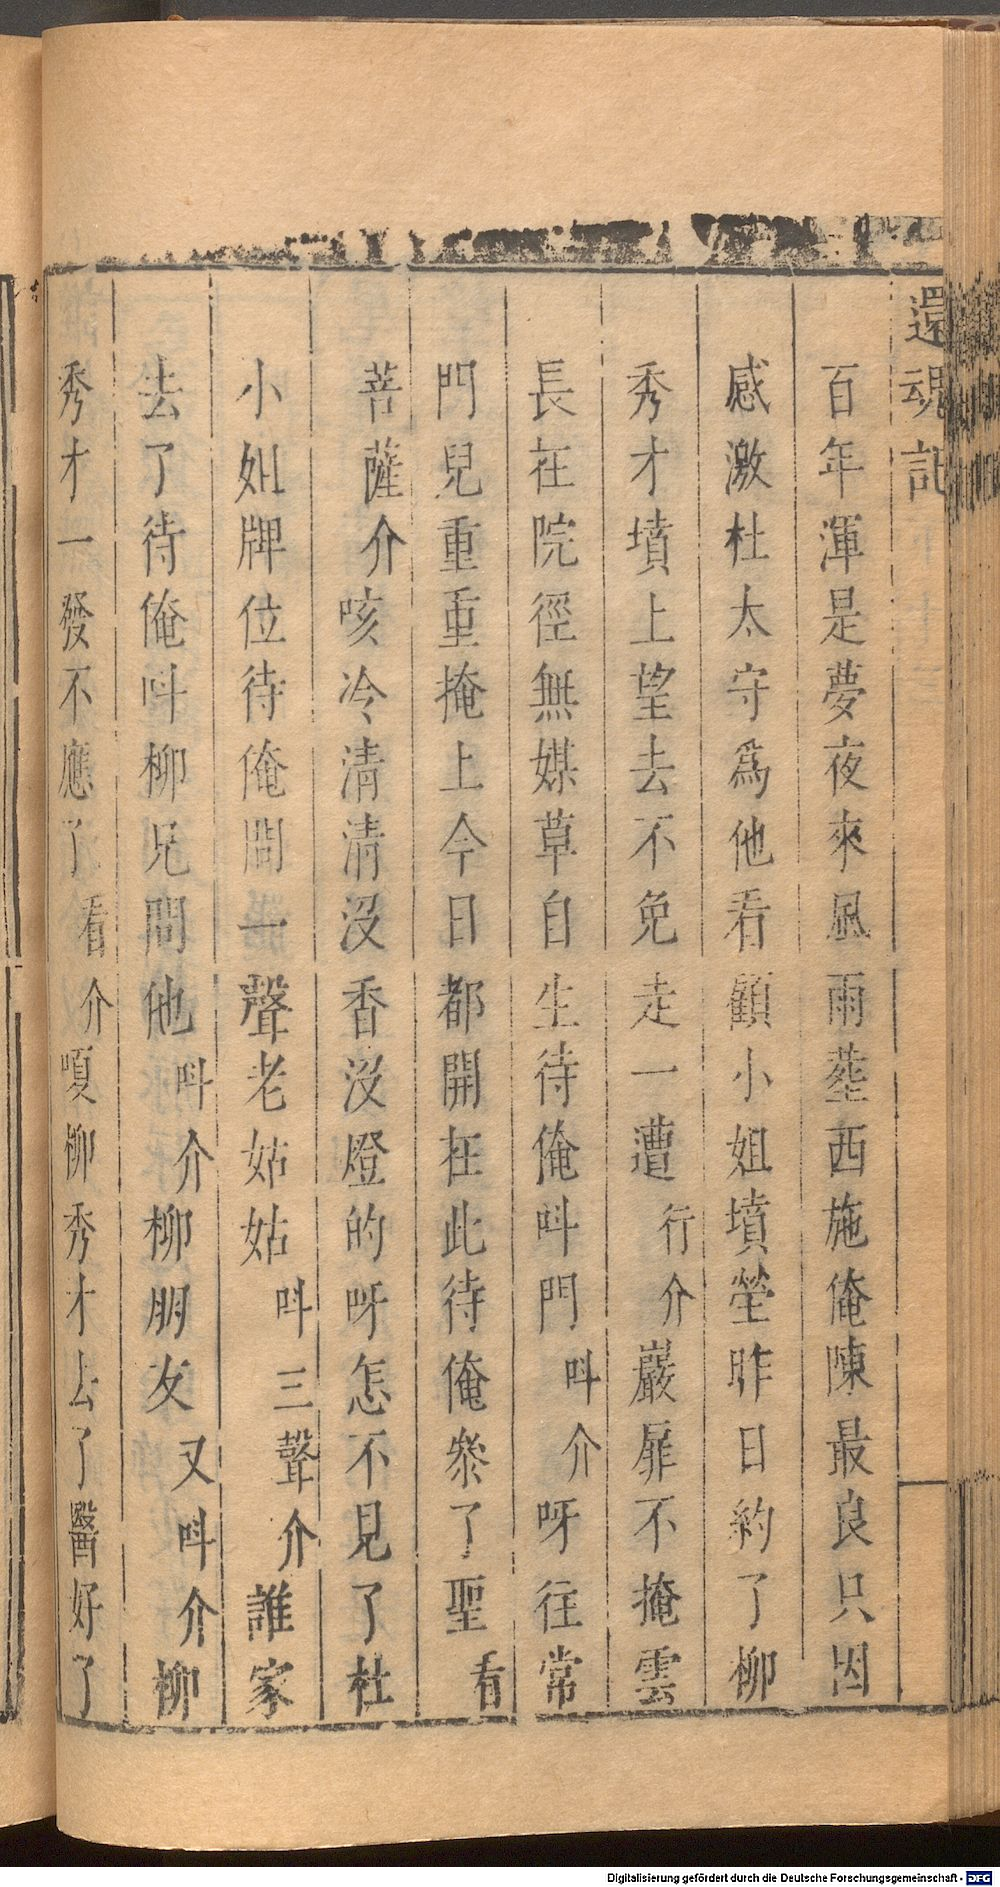 還魂記
百年渾是夢夜來風雨塟西施俺陳最良只因
感激杜太守爲他看顧小姐墳塋昨日約了柳
秀才墳上望去不免走一遭行介巖扉不掩雲
長在院徑無媒草自生待俺呌門呌介呀往常
門兒重重掩上今日都開在此待俺叅了聖看
菩薩介咳冷清清沒香沒燈的呀怎不見了杜
小姐牌位待俺問一聲老姑姑呌三聲介誰家
去了待俺呌柳兄問他呌介柳朋友又呌介柳
秀才一發不應了看介嗄柳秀才去了醫好了
Digitalisierung gefördert durch die Deutsche Forschungsgemeinschaft - DFG